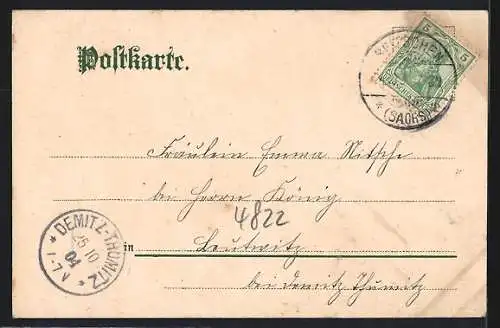 Postkarte.
5 5
(SACHS.)
Fräulein Emma Nitsche
bei Herrn König
4822
in Leutwitz
bei Demitz Thumitz
* DEMITZ-THUMITZ *
25 10
04
1-7 V